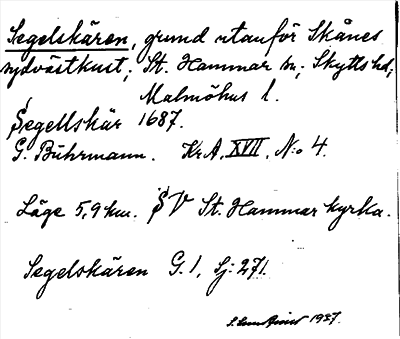 Segelskären, grund utanför Skånes
sydvästkust; St. Hammar sn; Skytts hd;
Malmöhus l.
Segellskär 1687.
G. Bührmann. Kr.A. XVII, N:o 4.
Läge 5,9 km. SV St. Hammar kyrka.
Segelskären G. 1, Sj: 271.
1937.